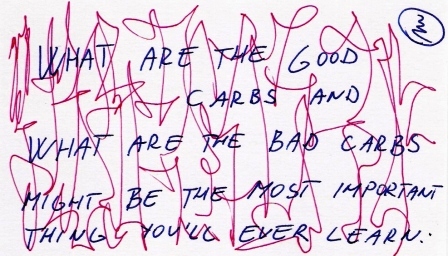 3
WHAT ARE THE GOOD
CARBS AND
WHAT ARE THE BAD CARBS
MIGHT BE THE MOST IMPORTANT
THING YOU'LL EVER LEARN.